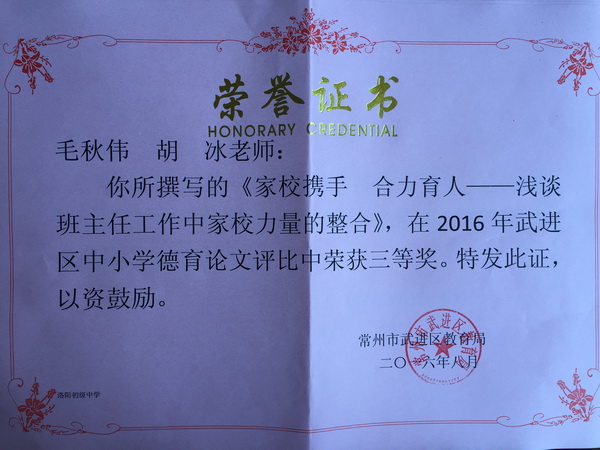 荣誉证书
HONORARY CREDENTIAL
毛秋伟 胡 冰老师：
你所撰写的《家校携手 合力育人——浅谈
班主任工作中家校力量的整合》，在 2016 年武进
区中小学德育论文评比中荣获三等奖。特发此证，
以资鼓励。
常州市武进区教育局
二〇一六年八月
洛阳初级中学